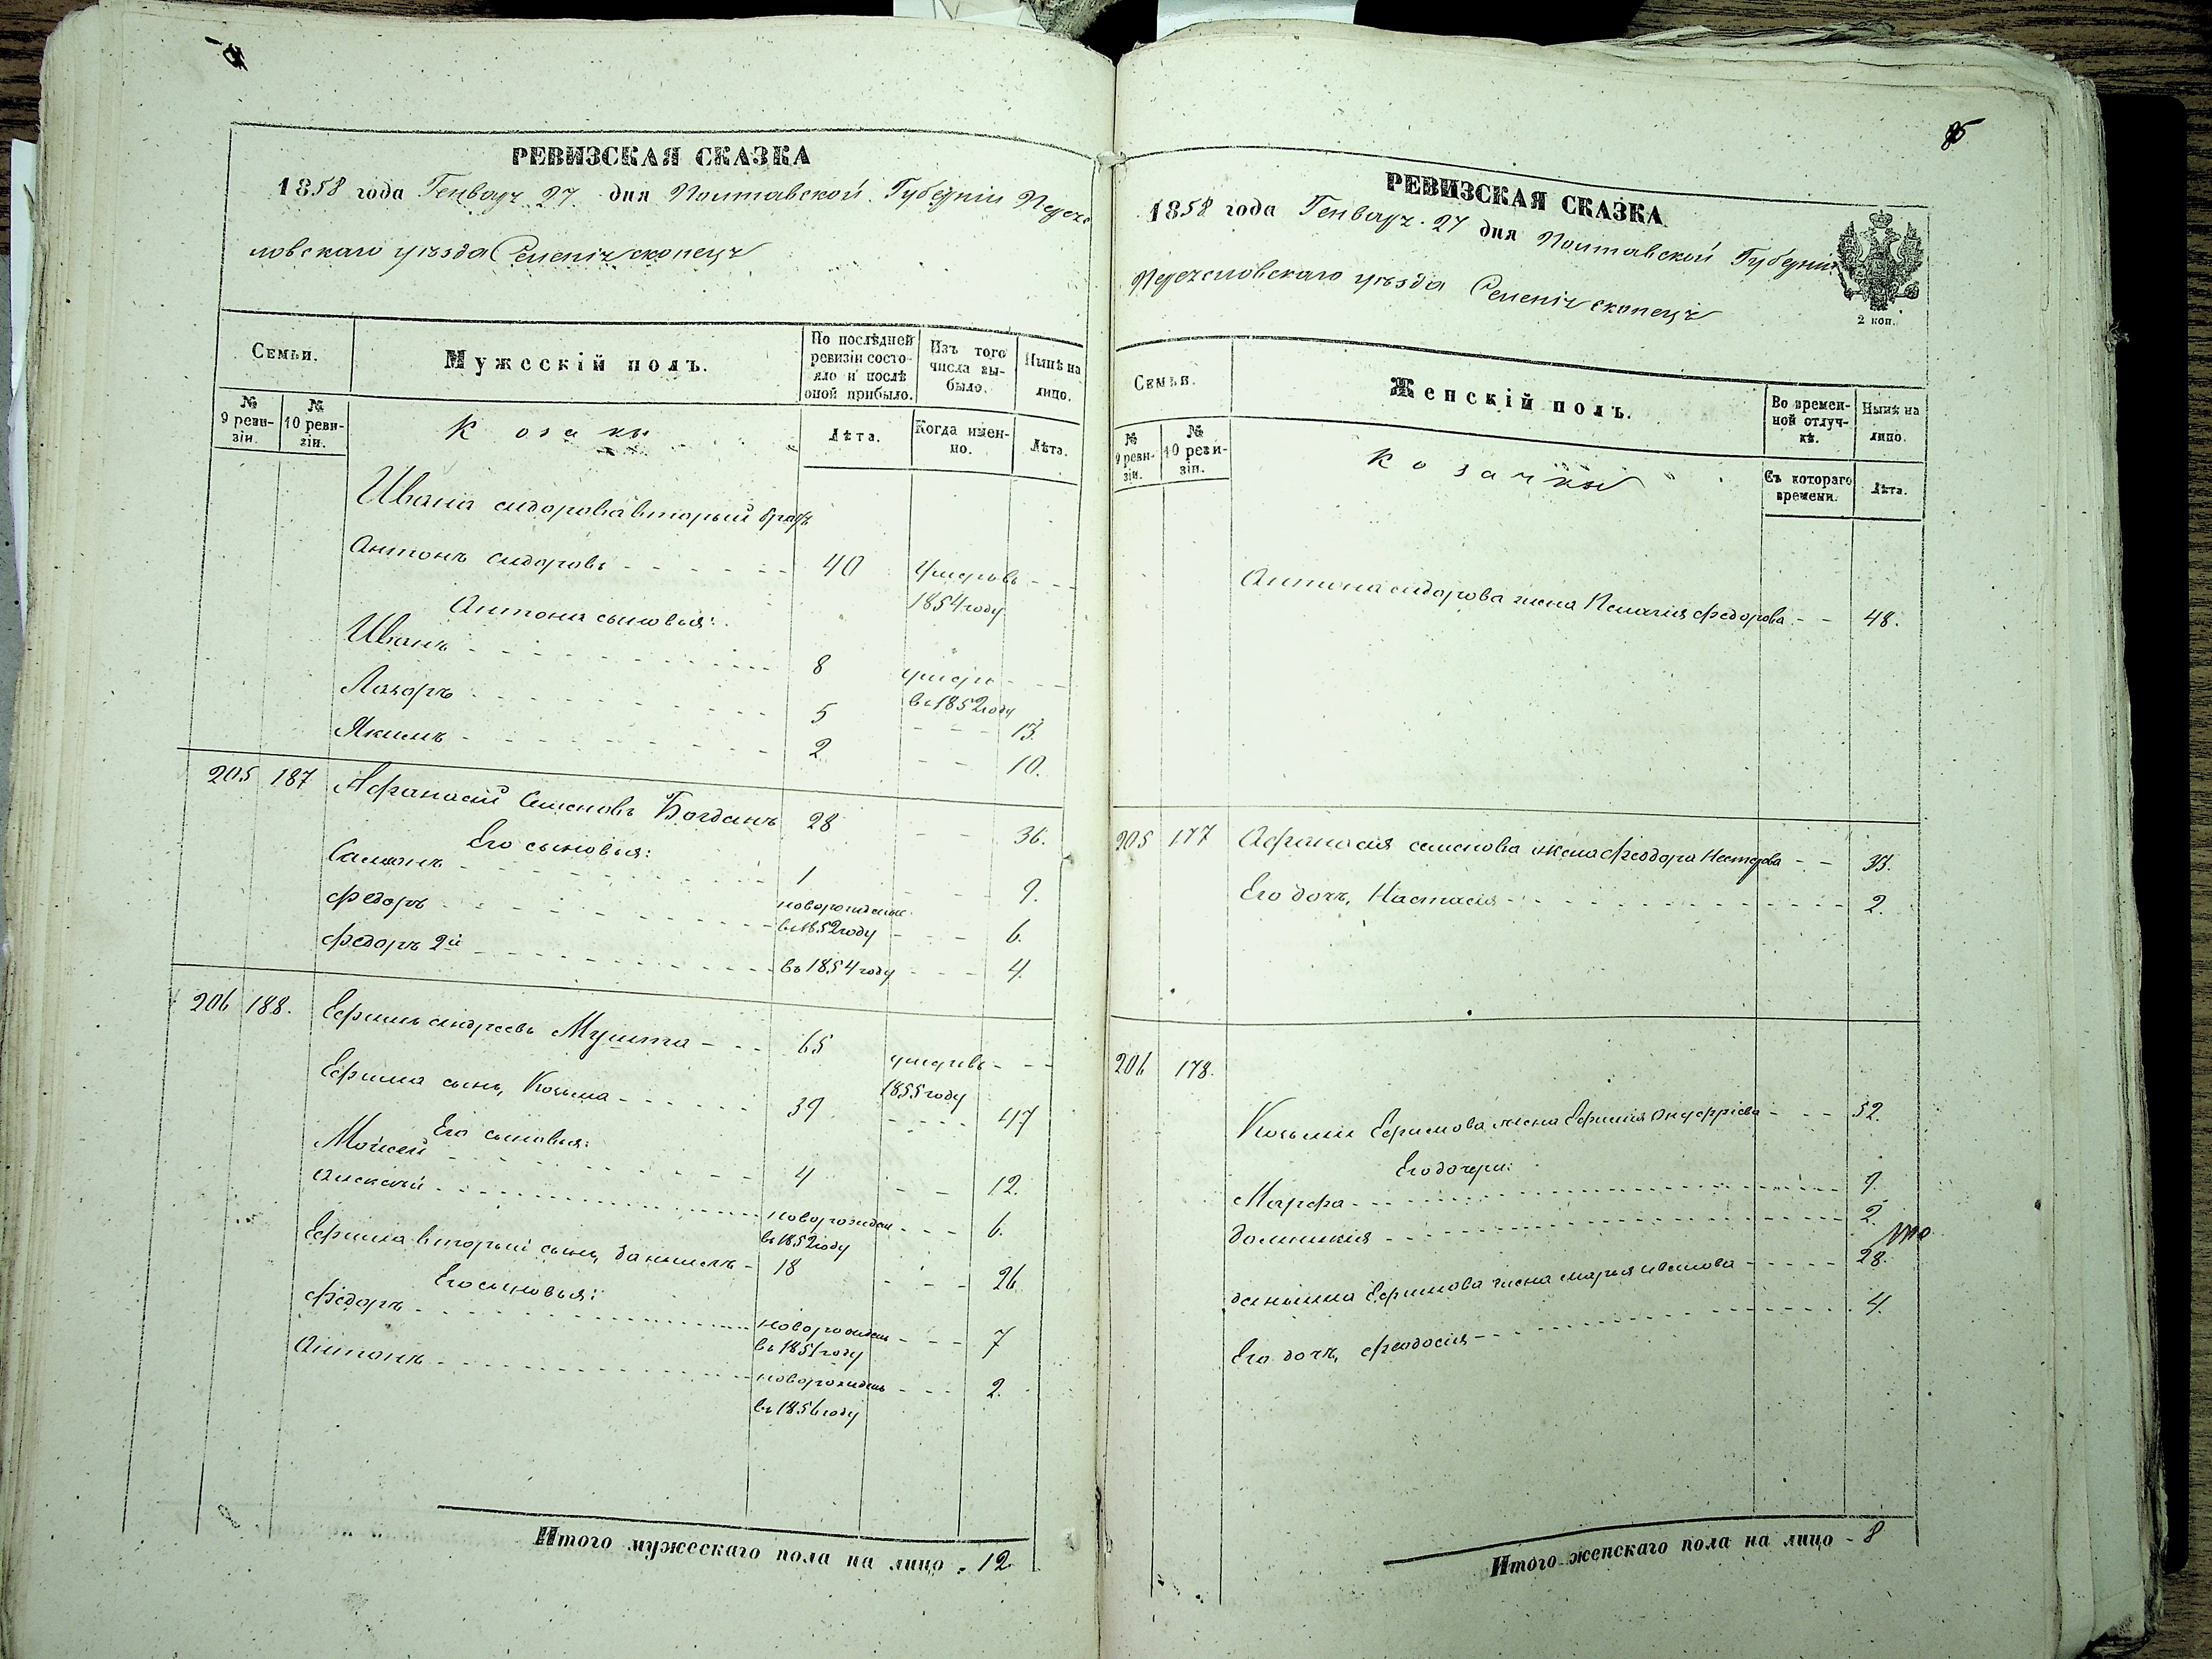 РЕВИЗСКАЯ СКАЗКА
1858 года Генваря 27 дня Полтавской Губерніи Перея
ловскаго уезда
Семьи.
Мужескій полъ.
По послѣдней ревизіи состояло и послѣ оной прибыло.
Изъ того числа выбыло.
Нынѣ на лицо.
№ 9 ревизіи.
№ 10 ревизіи.
Козаки
Лѣта.
Когда именно.
Лѣта.
Ивана сидорова вторый братъ
Антонъ сидоровъ - - - 40 умеръ въ - - -
1854 году
Антона сыновья:
Иванъ - - - 8 умеръ - - -
въ 1852 году
Лазоръ - - - 5 - - - 13.
Якимъ - - - 2 - - 10.
205 187 Афанасій Семеновъ Богданъ 28 - - 36.
Его сыновья:
Самонъ - - - 1 - - 9.
федоръ - - - новорожденъ въ 1852 году - - - 6.
федоръ 2й - - - въ 1854 году - - - 4.
206 188. Ефимъ андреевъ Мушта - - - 65 умеръ въ - - -
1855 году
Ефима сынъ, Козьма - - - 39 - - - 47
Его сыновья:
Мойсей - - - 4 - - 12.
Алексѣй - - - новорожден - - - 6.
въ 1852 году
Ефима вторый сынъ, Даниилъ - 18 - - - 26
Его сыновья:
федоръ - - - новорожден - - - 7
въ 1851 году
Антонъ - - - новорожден - - - 2.
въ 1856 году
Итого мужескаго пола на лицо - 12
85
РЕВИЗСКАЯ СКАЗКА
1858 года Генваря 27 дня Полтавской Губерніи
Переясловскаго уезда
2 коп.
Семьи.
Женскій полъ.
Во временной отлучкѣ.
Нынѣ на лицо.
№ 9 ревизіи.
№ 10 ревизіи.
Козачки
Съ котораго времени.
Лѣта.
Антона сидорова жена Пелагия федорова - - 48.
205 177 Афанасия семенова жена феодора Нестерова - - 33.
Его дочь, Настасия - - - 2.
206 178.
Козьмы Ефимова жена Ефимия Онуфріева - - - 52.
Его дочери:
Марфа - - - 9.
Домникия - - - 2.
даниила Ефимова жена марья иванова - - - 28.
Его дочь, феодосия - - - 4.
Итого женскаго пола на лицо - 8